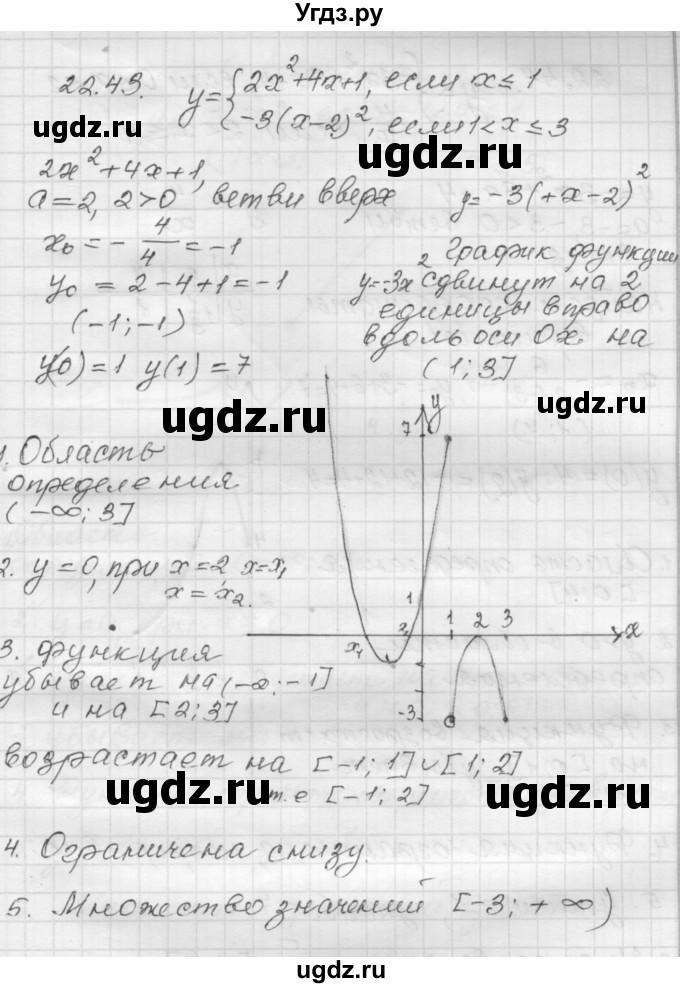 Угдз.ру
22.43. y={2x²+4x+1, если x≤1
-3(x-2)², если 1<x≤3
ugdz.ru
ugdz.ru
2x²+4x+1,
a=2, 2>0 ветви вверх
y=-3(+x-2)²
x₀=-4/4=-1
y₀=2-4+1=-1
(-1;-1)
y(0)=1 y(1)=7
График функции
y=-3x² сдвинут на 2
единицы вправо
вдоль оси Ox. на
(1;3]
ugdz.ru
ugdz.ru
y
7
1
1 2 3
x₁
x₂
x
-3
1. Область
определения
(-∞;3]
2. y=0, при x=2, x=x₁
x=x₂.
ugdz.ru
3. Функция
убывает на (-∞;-1]
и на [2;3]
возрастает на [-1;1]∪[1;2]
т.е [-1;2]
ugdz.ru
ugdz.ru
4. Ограничена снизу.
ugdz.ru
5. Множество значений [-3;+∞)
ugdz.ru
ugdz.ru